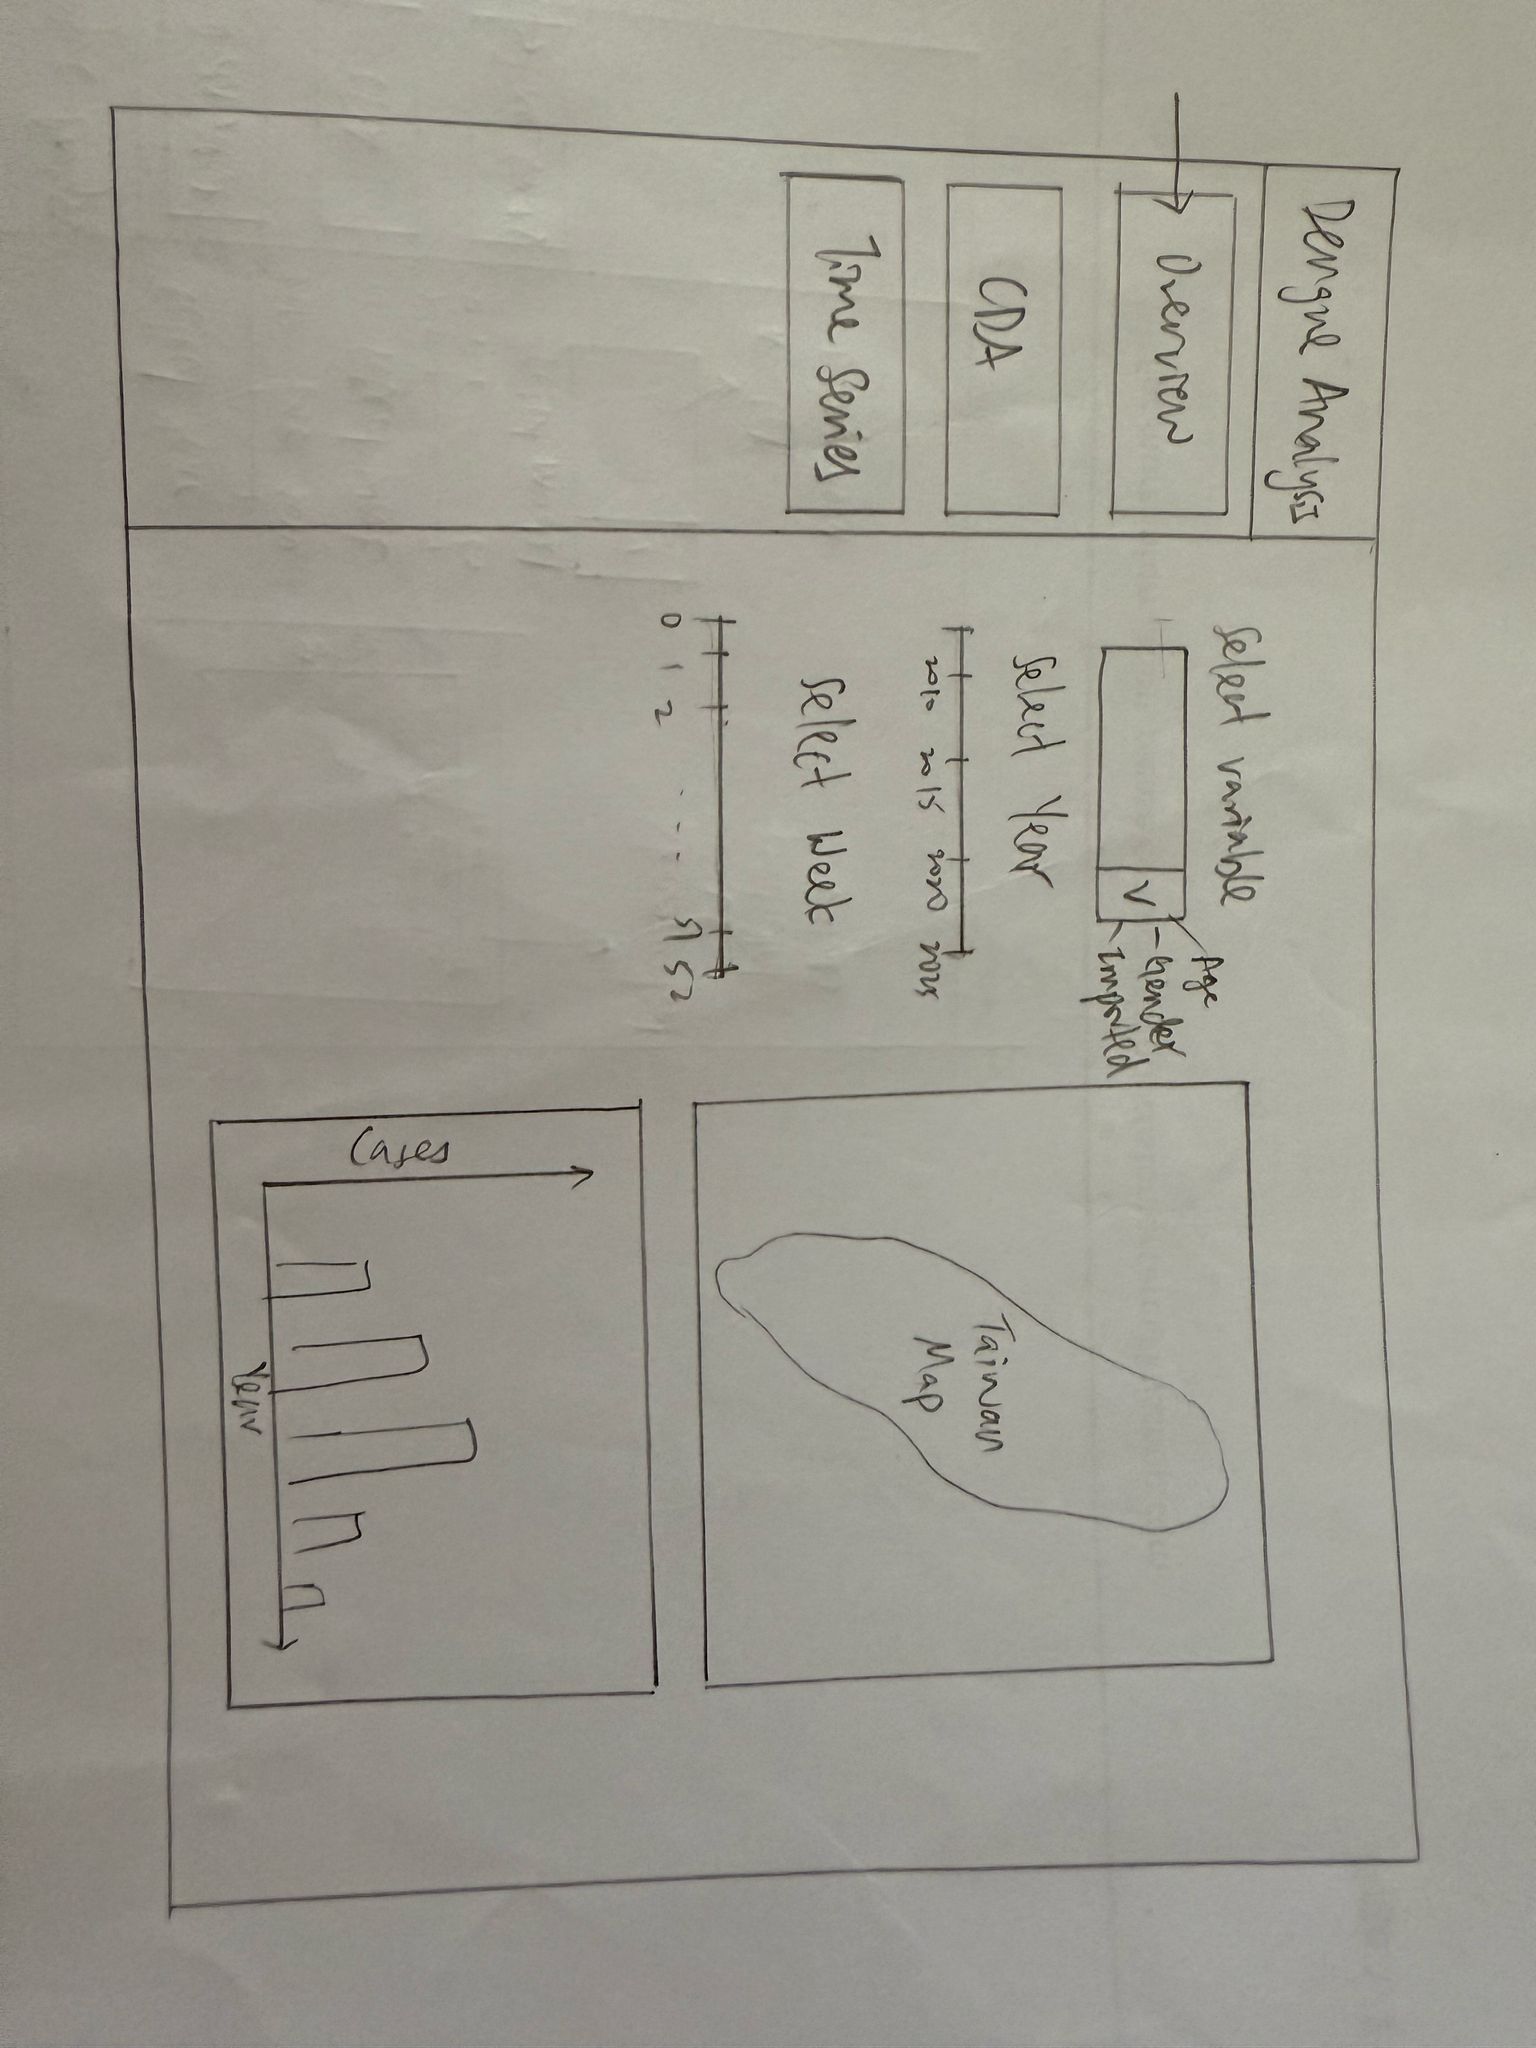 Dengue Analysis
Overview
CDA
Time Series
Select variable
V
Age
Gender
Imported
Select Year
2010 2015 2020 2025
Select Week
0 1 2 ... 51 52
Taiwan
Map
Cases
Year